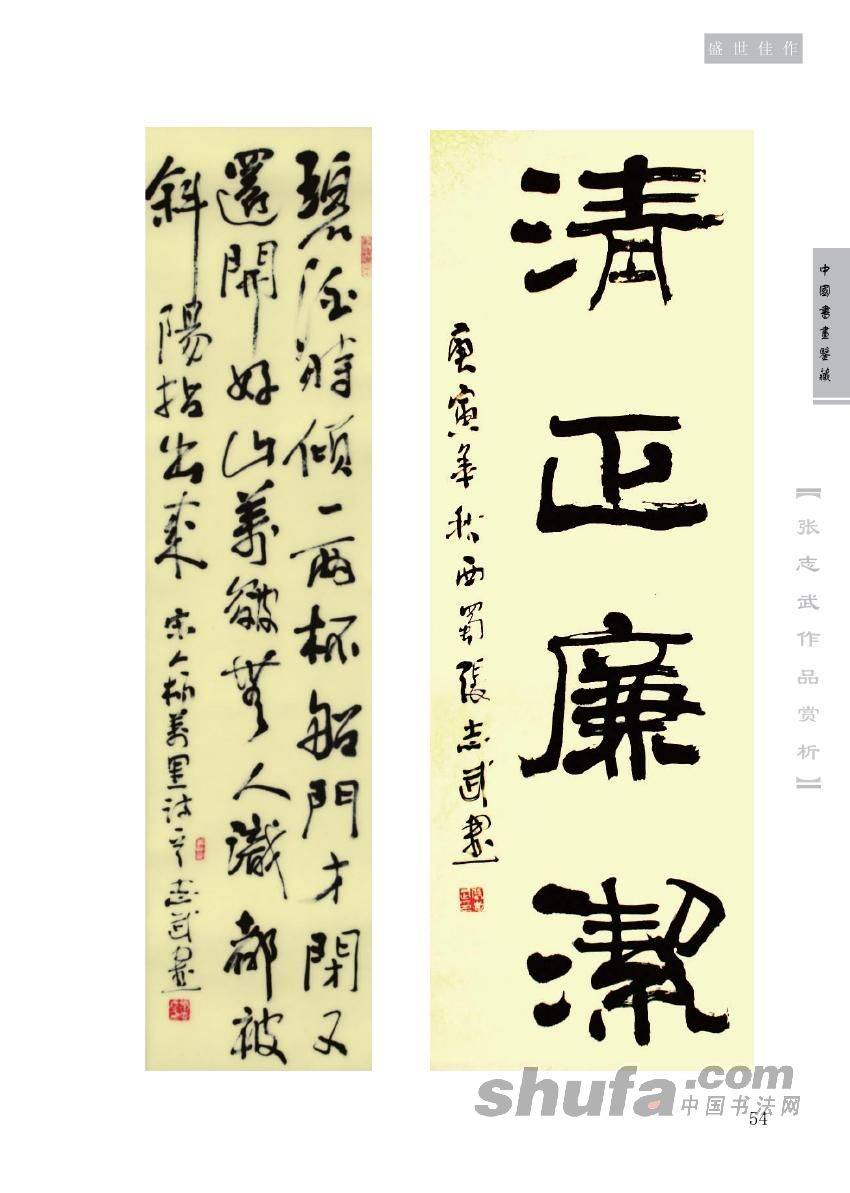 盛世佳作
中國書畫鑒藏
【张志武作品赏析】
清正廉潔
庚寅年秋西蜀張志武書
碧酒時傾一兩杯船門才閉又
還開好山萬皺無人識都被
斜陽拈出來
宋人楊萬里詩一首志武書
shufa.com
中国书法网
54